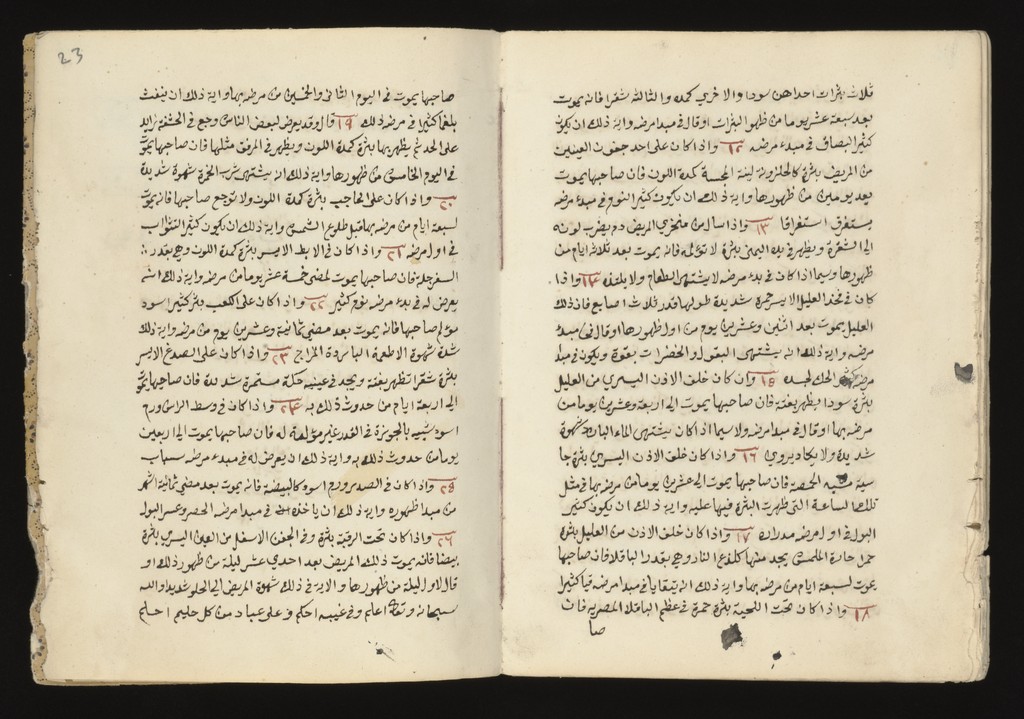 ثلاث بثرات احداهن سودا والاخري كمده والثالثه شقرا فانه يموت
بعد سبعة عشر يوما من ظهور البثرات او قال في مبدا مرضه واية ذلك ان يكون
كثير البصاق في مبدء مرضه ١٢ واذا كان على احد جفون العينين
من المريض بثرة كالحلزونه لينة المجسة كمدة اللون فان صاحبها يموت
بعد يومين من ظهورها واية ذلك ان يكون كثير النوم في مبدء مرضه
يستغرق استغراقا ١٣ واذا سال من منخري المريض دم يضرب لونه
الى الشقرة ويظهر في يده اليمنى بثرة لا تؤلمه فانه يموت بعد ثلاثة ايام من
ظهورها وسيما اذا كان في بدء مرضه لا يشتهى الطعام ولا يلتذه ١٤ واذا
كان في فخذ العليل الايسر حمرة شديدة طولها قدر ثلاث اصابع فان ذلك
العليل يموت بعد اثنين وعشرين يوم من اول ظهورها او قال في مبدء
مرضه واية ذلك انه يشتهى البقول والخضرات بقوة ويكون في مبدا
مرضه كثير الحك لجسده ١٥ وان كان خلف الاذن اليسرى من العليل
بثرة سودا يظهر بغتة فان صاحبها يموت الى اربعة وعشرين يوما من
مرضه بها او قال في مبدا مرضه ولا سيما اذا كان يشتهى الماء البارد شهوة
شديدة ولا يكاد يروي ١٦ واذا كان خلف الاذن اليسرى بثرة جا
سية شبيه الحمصة فان صاحبها يموت الى عشرين يوما من مرضه بها في مثل
تلك الساعة التى ظهرت البثرة فيها عليه واية ذلك ان يكون كثير
البول في اول مرضه مدراره ١٧ واذا كان خلف الاذن من العليل بثرة
حمرا حارة الملمس يجد منها كلذع النار وهى بقدر الباقلا فان صاحبها
يموت لسبعة ايام من مرضه بها واية ذلك انه يتقايا في مبدا مرضه قيا كثيرا
١٨ واذا كان تحت اللحية بثرة حمرة في عظم الباقلا المصرية فان
صا
23
صاحبها يموت في اليوم الثانى والخمسين من مرضه بها واية ذلك ان ينفث
بلغما كثيرا في مرضه ذلك ١٩ قال وقد يعرض لبعض الناس وجع في الحشفة زايد
على الحد ثم يظهر بها بثرة كمدة اللون ويظهر في المرفق مثلها فان صاحبها يموت
في اليوم الخامس من ظهورها واية ذلك انه يشتهى شرب الخمرة شهوة شديدة
٢٠ واذا كان على الحاجب بثرة كمدة اللون ولا توجع صاحبها فانه يموت
لسبعة ايام من مرضه بها قبل طلوع الشمس واية ذلك ان يكون كثير التثاوب
في اول مرضه ٢١ واذا كان في الابط الايسر بثرة كمدة اللون وهى بقدر
السفرجلة فان صاحبها يموت لمضى خمسة عشر يوما من مرضه واية ذلك انه
يعرض له في بدء مرضه نوم كثير ٢٢ واذا كان على الكعب بثر كثير اسود
مؤلم صاحبها فانه يموت بعد مضى ثمانية وعشرين يوم من مرضه واية ذلك
شدة شهوة الاطعمة الباردة المزاج ٢٣ واذا كان على الصدغ الايسر
بثرة شقرا تظهر بغتة ويجد في عينيه حكة مستمرة شديدة فان صاحبها يموت
الى اربعة ايام من حدوث ذلك به ٢٤ واذا كان في وسط الراس ورم
اسود شبيه بالجوزة في القدر غير مؤلمة له فان صاحبها يموت الى اربعين
يوما من حدوث ذلك به واية ذلك ان يعرض له في مبدء مرضه سبات
٢٥ واذا كان في الصدر ورم اسود كالبيضة فانه يموت بعد مضى ثمانية اشهر
من مبدا ظهوره واية ذلك ان ياخذه في مبدا مرضه الحصر وعسر البول
٢٦ واذا كان تحت الرقبة بثرة وفي الجفن الاسفل من العين اليسرى بثرة
بيضا فانه يموت ذلك المريض بعد احدي عشر ليلة من ظهور ذلك او
قال لاول ليلة من ظهورها والاية في ذلك شهوة المريض الى الحلو شديدا والله
سبحانه وتعالى اعلم وفي غيبه احكم وعلى عباده من كل حليم احلم